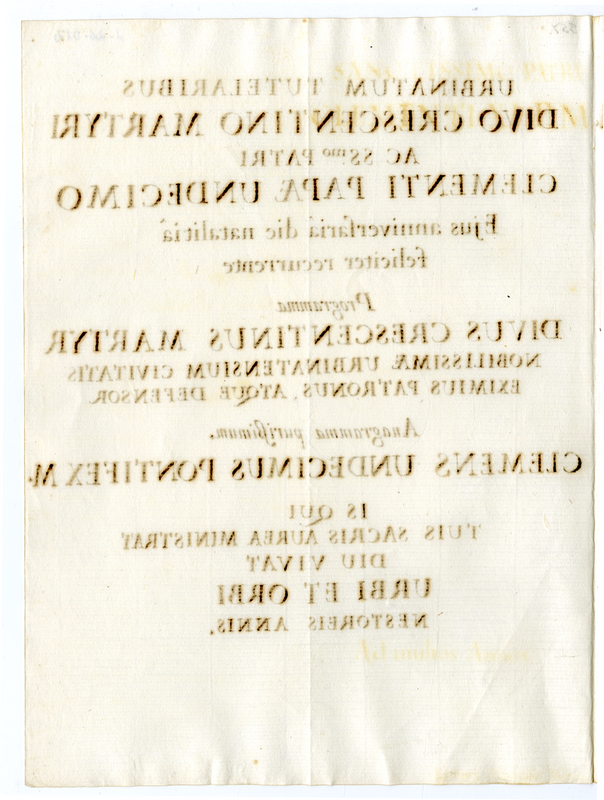 URBINATUM TUTELARIBUS
DIVO CRESCENTINO MARTYRI
AC SSmo PATRI
CLEMENTI PAPÆ UNDECIMO
Ejus anniversariâ die natalitiâ
feliciter recurrente
Programma
DIVUS CRESCENTINUS MARTYR
NOBILISSIMÆ URBINATENSIUM CIVITATIS
EXIMIUS PATRONUS, ATQUE DEFENSOR.
Anagramma purissimum.
CLEMENS UNDECIMUS PONTIFEX M.
IS QUI
TUIS SACRIS AUREA MINISTRAT
DIU VIVAT
URBI ET ORBI
NESTOREIS ANNIS.
Ad multos Annos